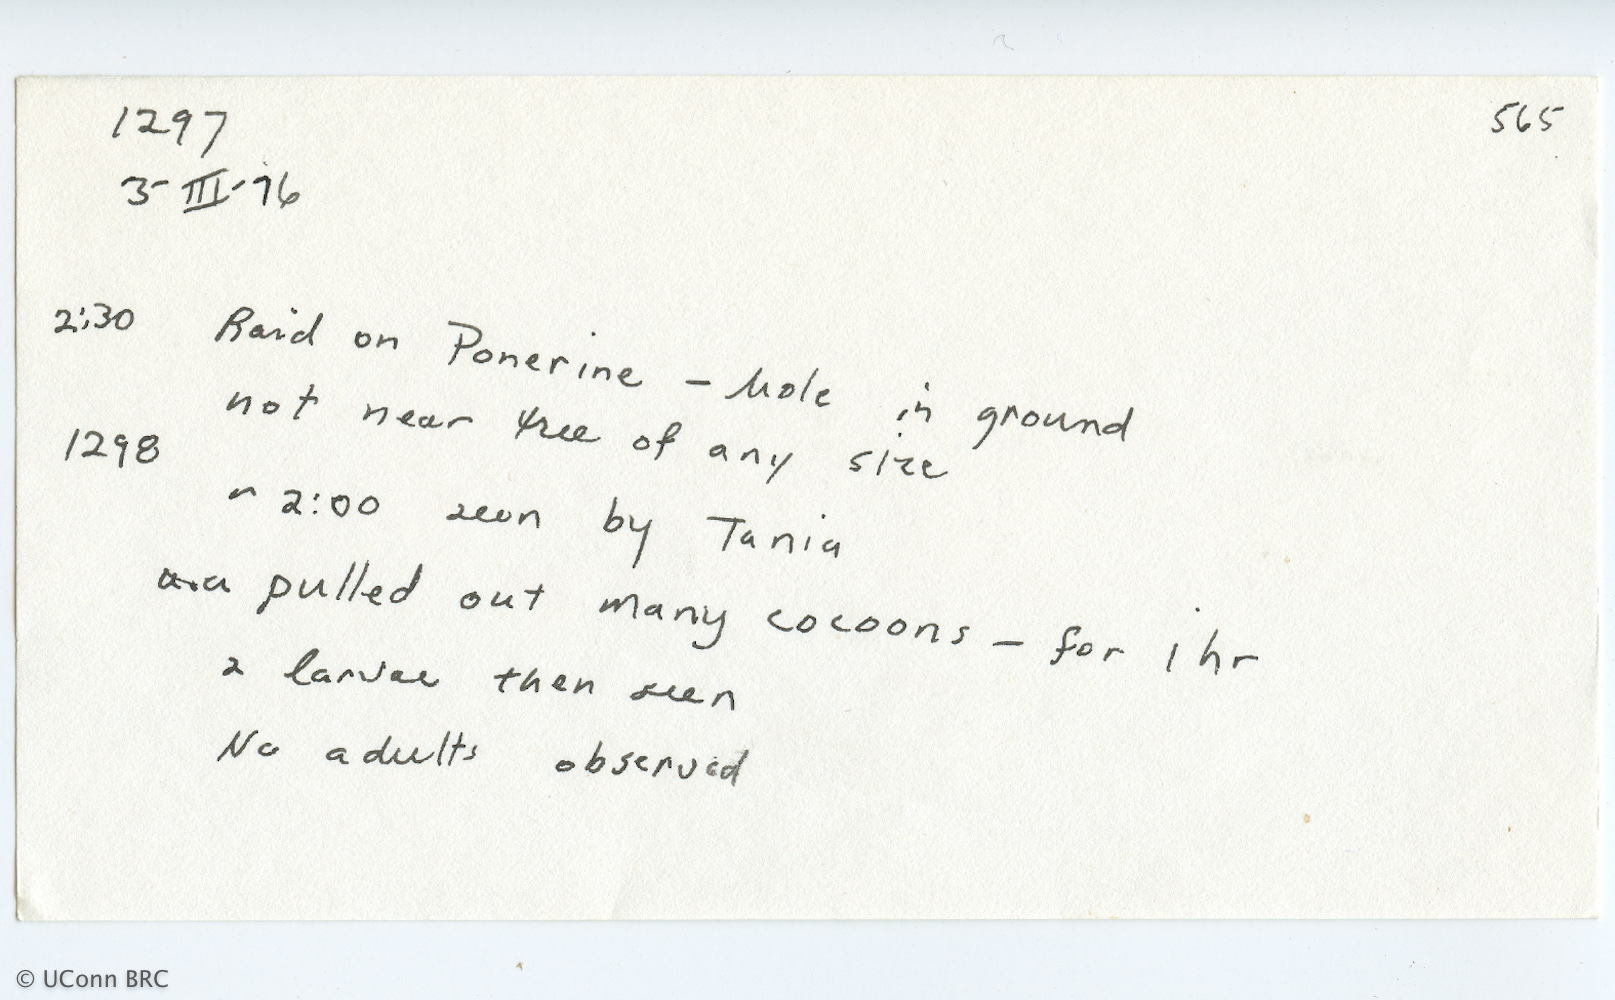 1297
565
3-III-76
2:30 Raid on Ponerine - hole in ground
not near tree of any size
1298
~ 2:00 seen by Tania
pulled out many cocoons - for 1 hr
2 larvae then seen
No adults observed
© UConn BRC